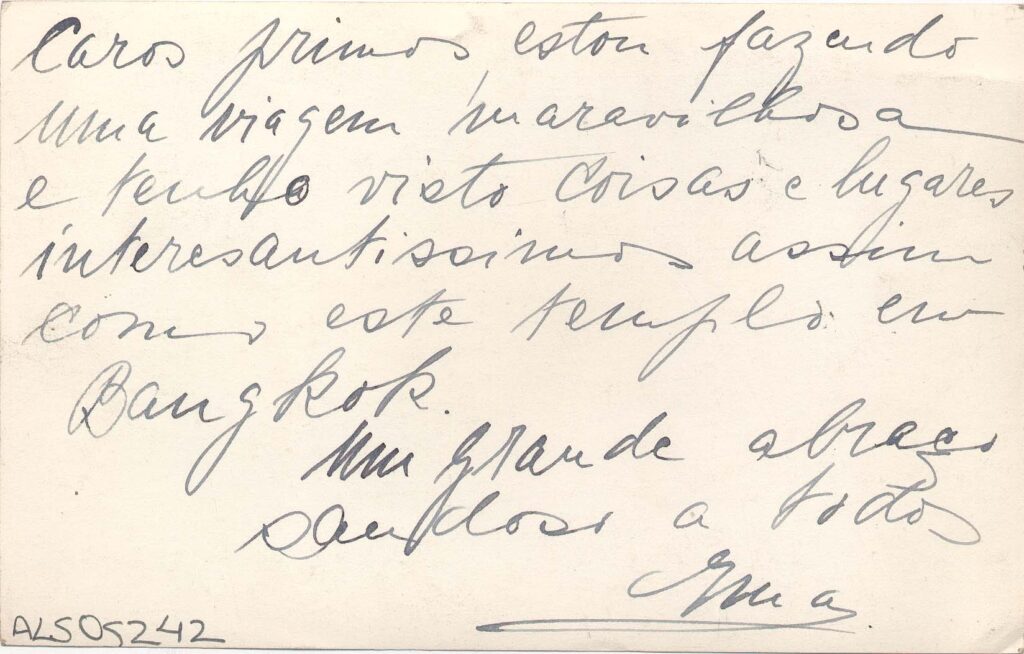 Caros primos, estou fazendo
uma viagem maravilhosa
e tenho visto coisas e lugares
interesantissimos assim
como este templo em
Bangkok.
Um grande abraço
saudoso a todos
Ema
ALS05242